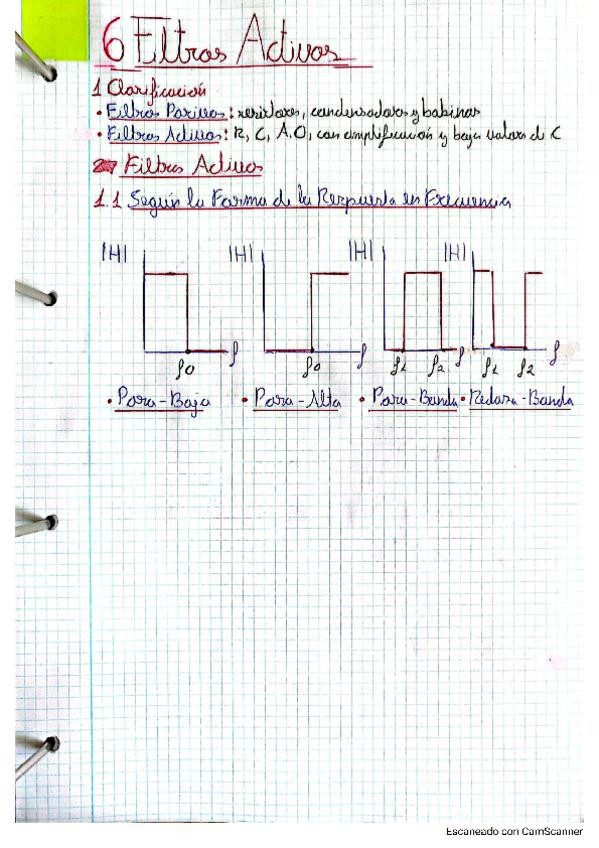 6 Filtros Activos
1 Clasificación
• Filtros Pasivos: resistores, condensadores y bobinas
• Filtros Activos: R, C, A.O, con amplificación y bajo valores de C
Filtros Activos
1.1 Según la Forma de la Respuesta en Frecuencia
|H| |H| |H| |H|
f0 f f0 f f1 f2 f f1 f2 f
• Pasa-Baja • Pasa-Alta • Pasa-Banda • Rechaza-Banda
Escaneado con CamScanner